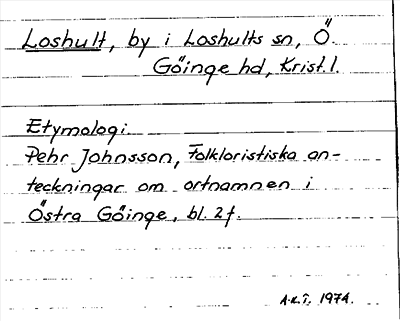 Loshult, by i Loshults sn, Ö.
Göinge hd, Krist. l.
Etymologi.
Pehr Johnsson, Folkloristiska an-
teckningar om ortnamnen i
Östra Göinge, bl. 2f.
1974.